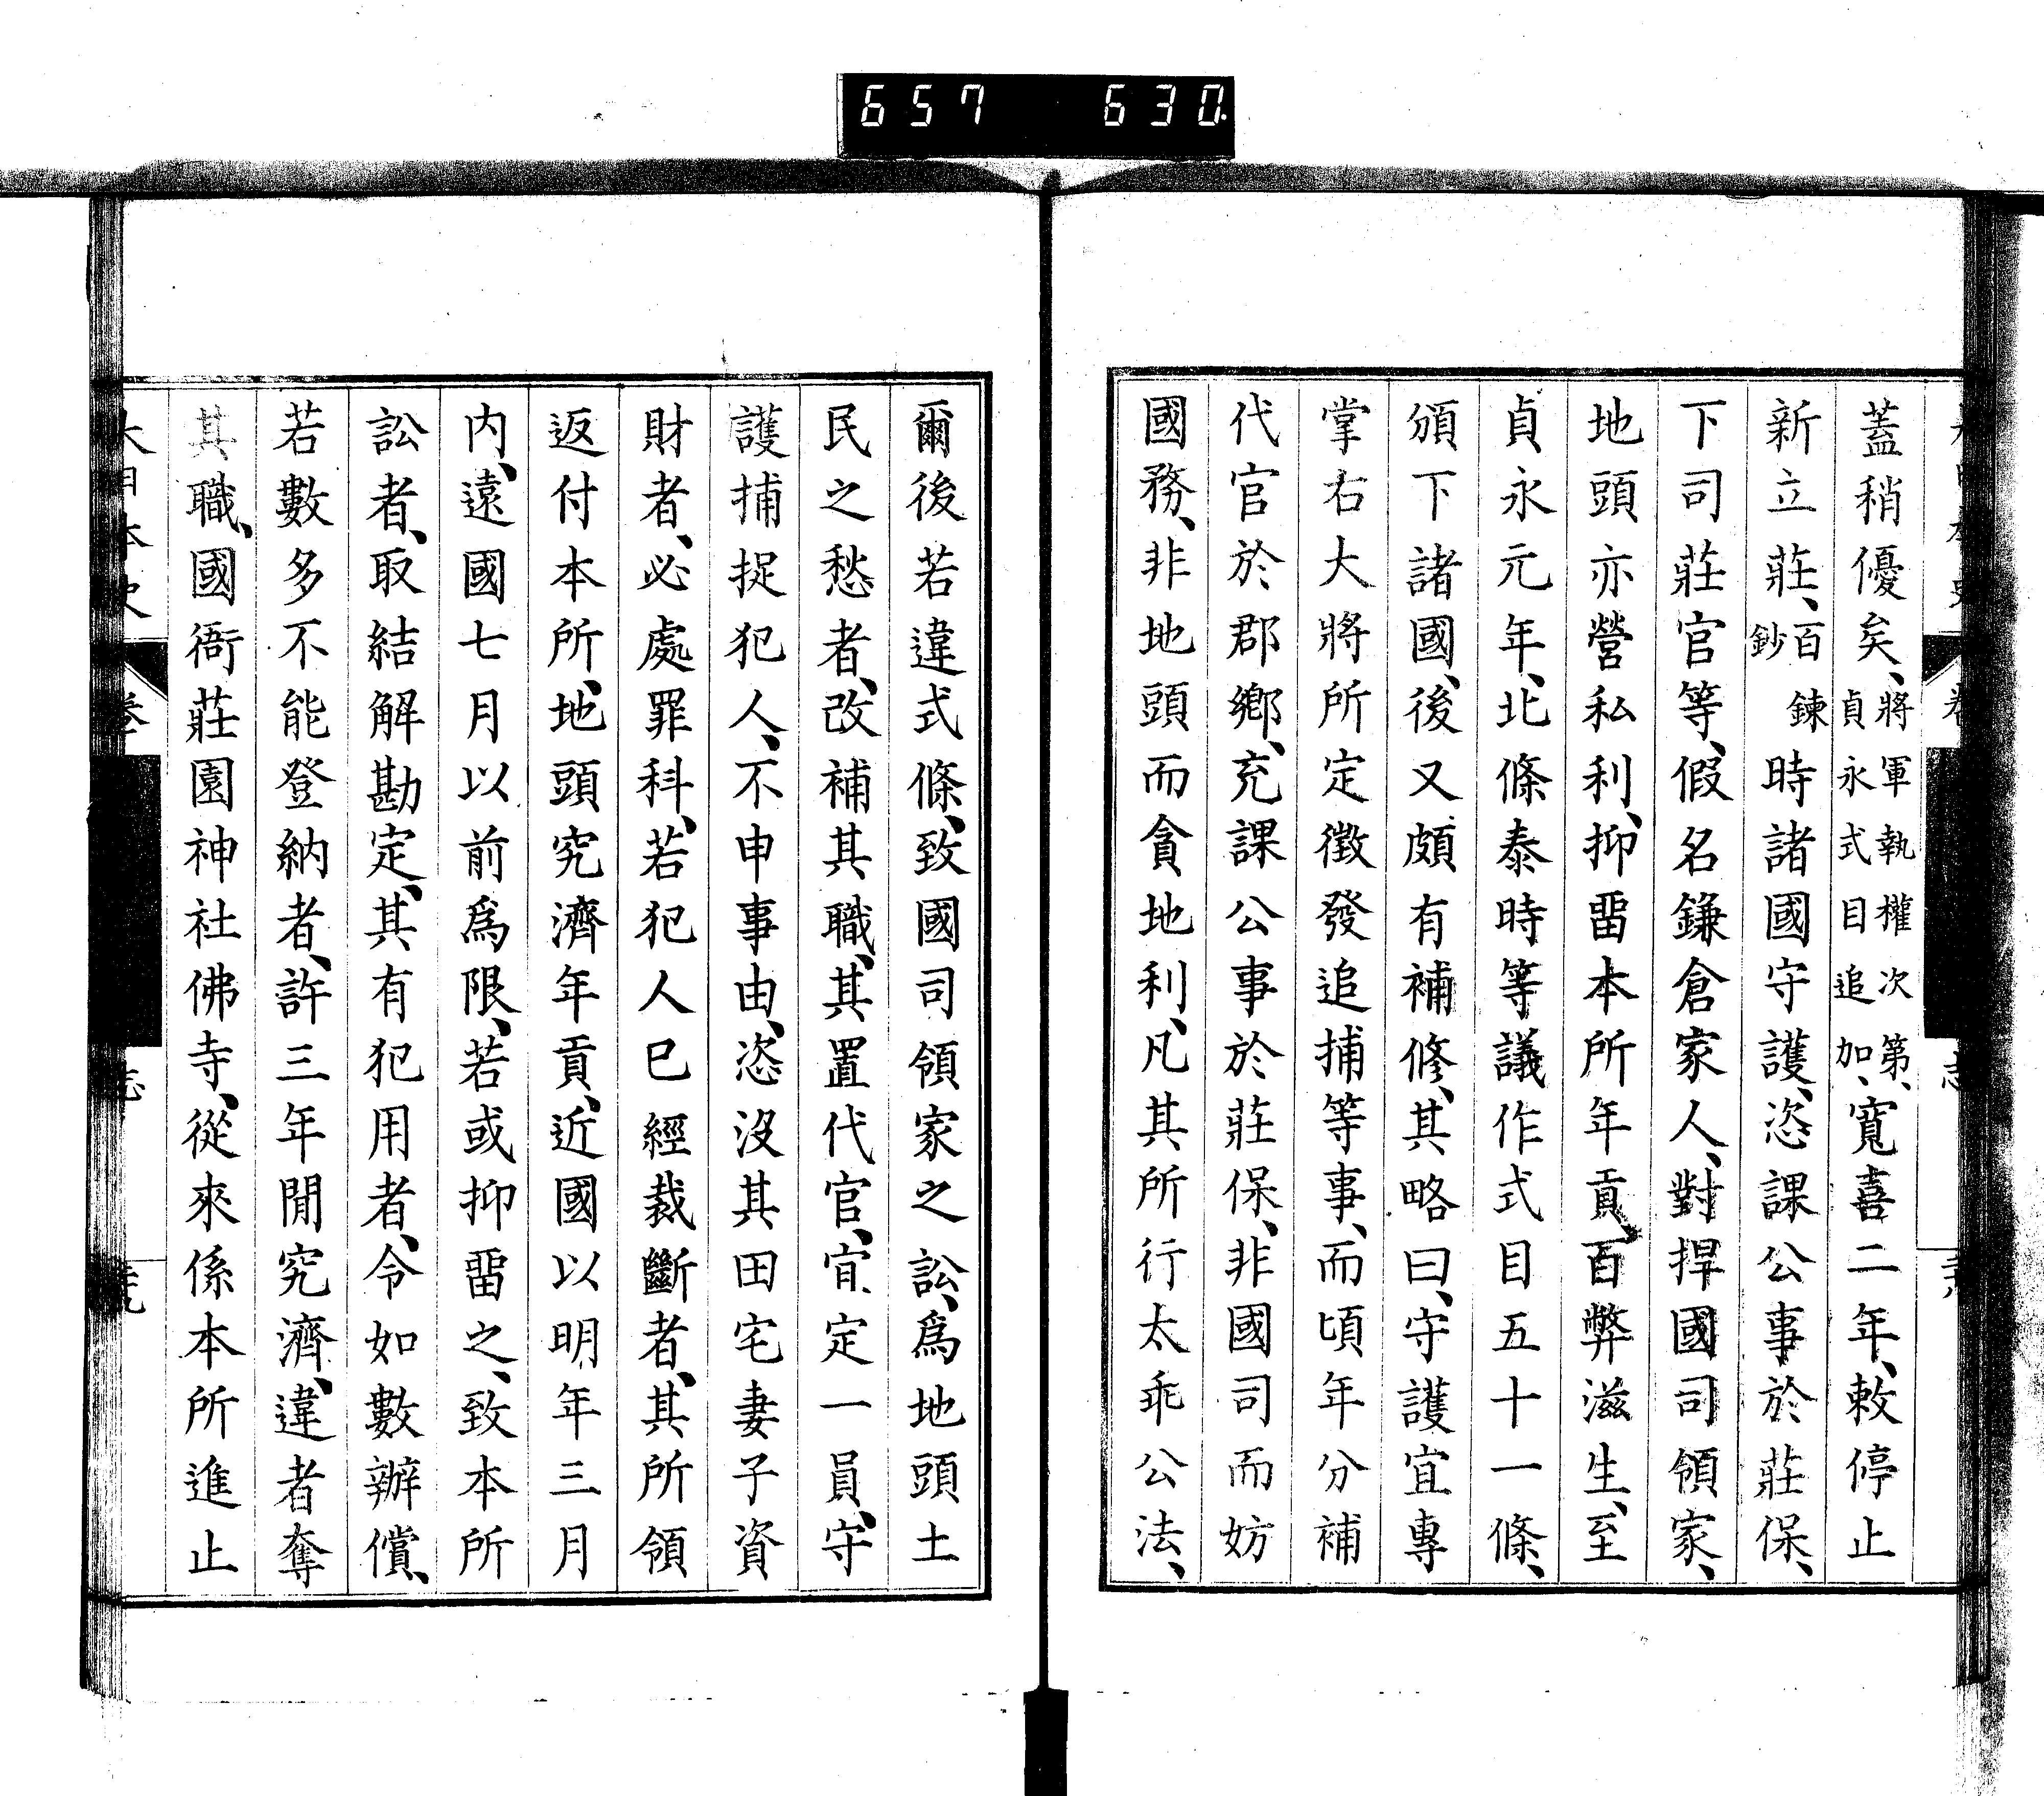 657 630
蓋稍優矣、將軍執權次第、貞永式目追加、寬喜二年、敕停止
新立莊、百鍊鈔時諸國守護、恣課公事於莊保、
下司莊官等、假名鎌倉家人、對捍國司領家、
地頭亦營私利、抑畱本所年貢、百弊滋生、至
貞永元年、北條泰時等議作式目五十一條、
頒下諸國、後又頗有補修、其略曰、守護宜專
掌右大將所定徵發追捕等事、而頃年分補
代官於郡鄉、充課公事於莊保、非國司而妨
國務、非地頭而貪地利、凡其所行太乖公法、
爾後若違式條、致國司領家之訟、爲地頭土
民之愁者、改補其職、其置代官、宜定一員、守
護捕捉犯人、不申事由、恣沒其田宅妻子資
財者、必處罪科、若犯人已經裁斷者、其所領
返付本所、地頭究濟年貢、近國以明年三月
内、遠國七月以前爲限、若或抑畱之、致本所
訟者、取結解勘定、其有犯用者、令如數辦償、
若數多不能登納者、許三年閒究濟、違者奪
其職、國衙莊園神社佛寺、從來係本所進止
大日本史 卷 志